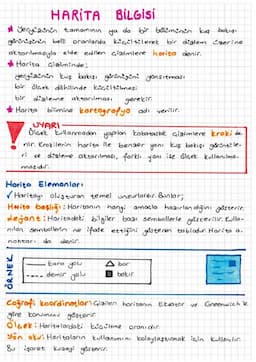 HARİTA BİLGİSİ
* Yeryüzünün tamamının ya da bir bölümünün kuş bakışı
görünüşünün belli oranlarda küçültülerek bir düzlem üzerine
aktarılmasıyla elde edilen çizimlere harita denir.
* Harita çiziminde;
yeryüzünün kuş bakışı görünüşünü yansıtması
bir ölçek dahilinde küçültülmesi
bir düzleme aktarılması gerekir.
* Harita bilimine kartografya adı verilir.
UYARI
Ölçek kullanmadan yapılan kabataslak çizimlere kroki de-
nir. Krokilerin harita ile benzer yanı kuş bakışı görüntüle-
ri ve düzleme aktarılması, farklı yanı ise ölçek kullanılma-
masıdır.
Harita Elemanları:
✓ Haritayı oluşturan temel unsurlardır. Bunlar;
Harita başlığı: Haritanın hangi amaçla hazırlandığını gösterir.
Lejant: Haritadaki bilgiler bazı sembollerle gösterilir. Kulla-
nılan sembollerin ne ifade ettiğini gösteren tablodur. Harita a-
nahtarı da denir.
ÖRNEK
kara yolu
bor
demir yolu
bakır
Coğrafi koordinatlar: Çizilen haritanın Ekvator ve Greenwich'e
göre konumunu gösterir.
Ölçek: Haritalardaki küçülme oranıdır.
Yön oku: Haritaların kullanımını kolaylaştırmak için kullanılır.
Bu işaret kuzeyi gösterir.